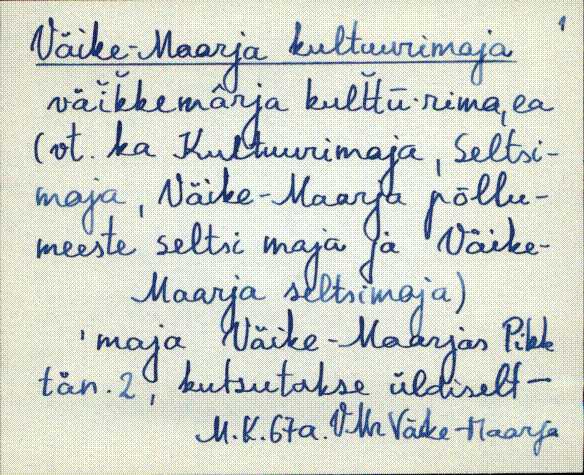 1
Väike-Maarja kultuurimaja
väĭk̆kemârja kult̆t̆ū·rima, ea
(vt. ka Kultuurimaja, Seltsi-
maja, Väike-Maarja põllu-
meeste seltsi maja ja Väike-
Maarja seltsimaja)
'maja Väike-Maarjas Pikk
tän. 2, kutsutakse üldiselt –
M.K. 67a. VMr Väike-Maarja